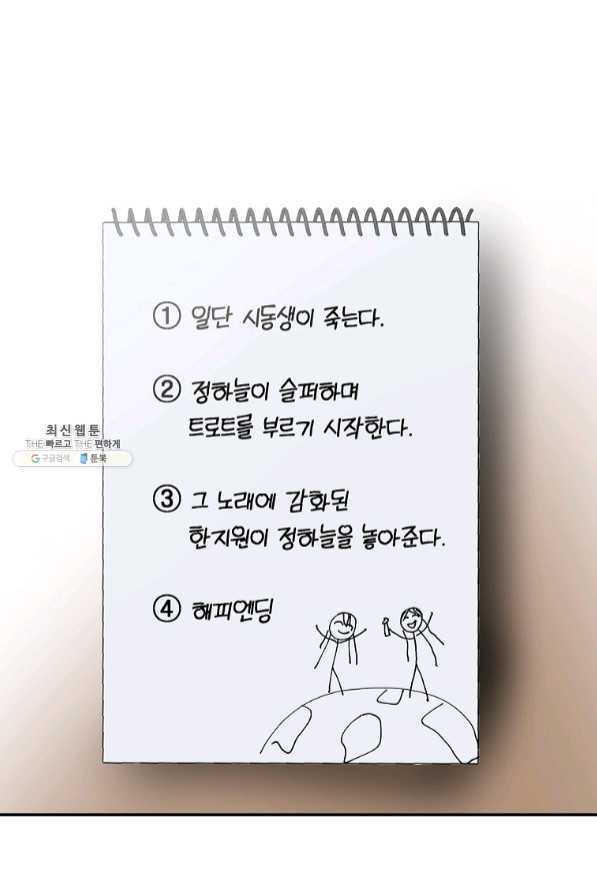 ① 일단 시동생이 죽는다.
② 정하늘이 슬퍼하며
트로트를 부르기 시작한다.
최신웹툰
THE 빠르고 THE 편하게
구글검색 툰북
③ 그 노래에 감화된
한지원이 정하늘을 놓아준다.
④ 해피엔딩